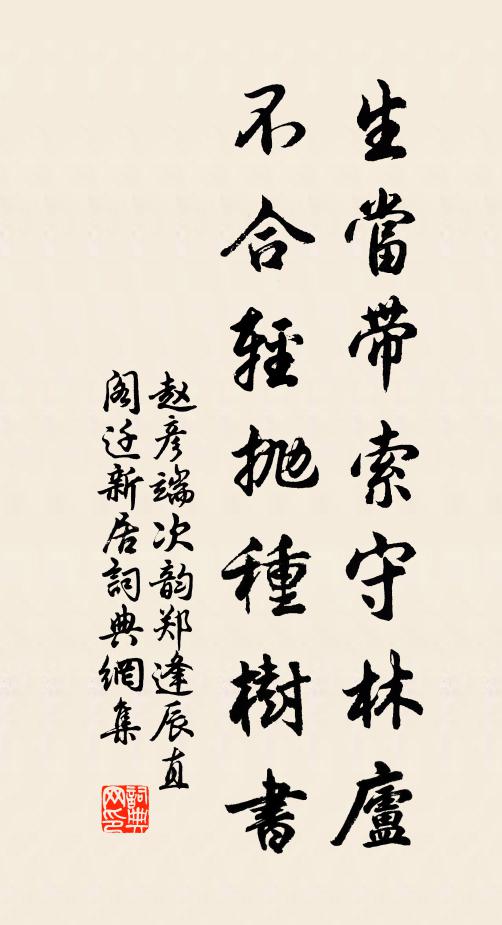 生當帶索守林廬
不合輕拋種樹書
赵彦端次韵郑逢辰直
阁迁新居詞典網集
詞典
网印